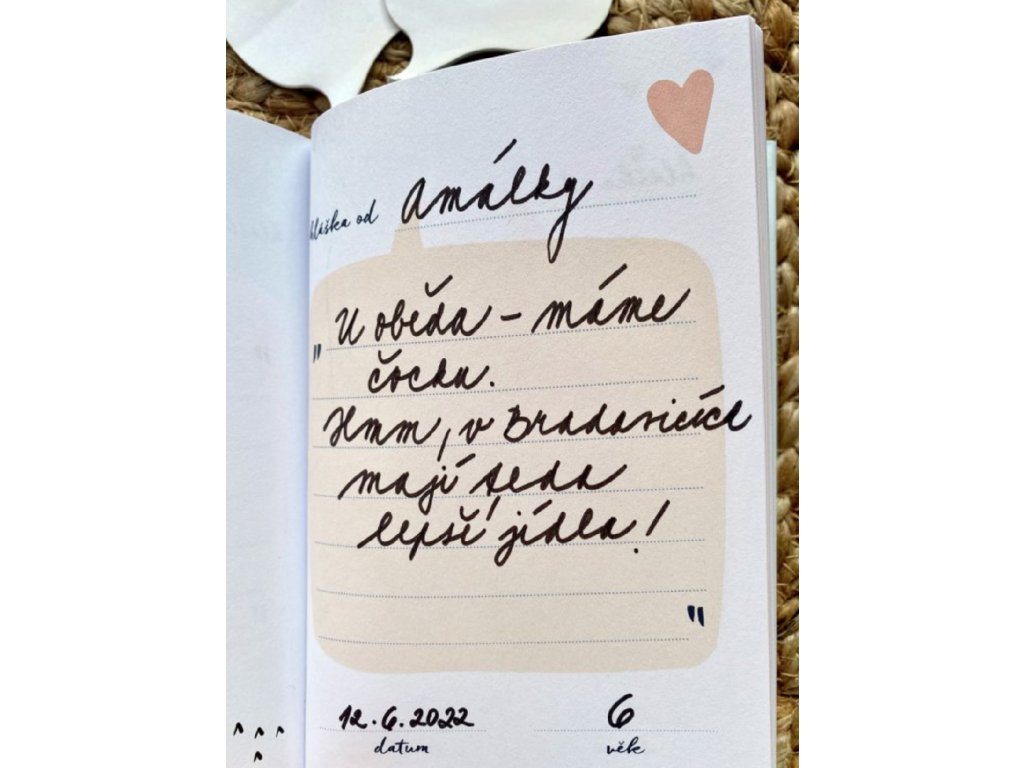 hláška od Amálky
„U oběda – máme
čočku.
Hmm, v Bradavicích
mají teda
lepší jídla!
"
12.6.2022 6
datum věk